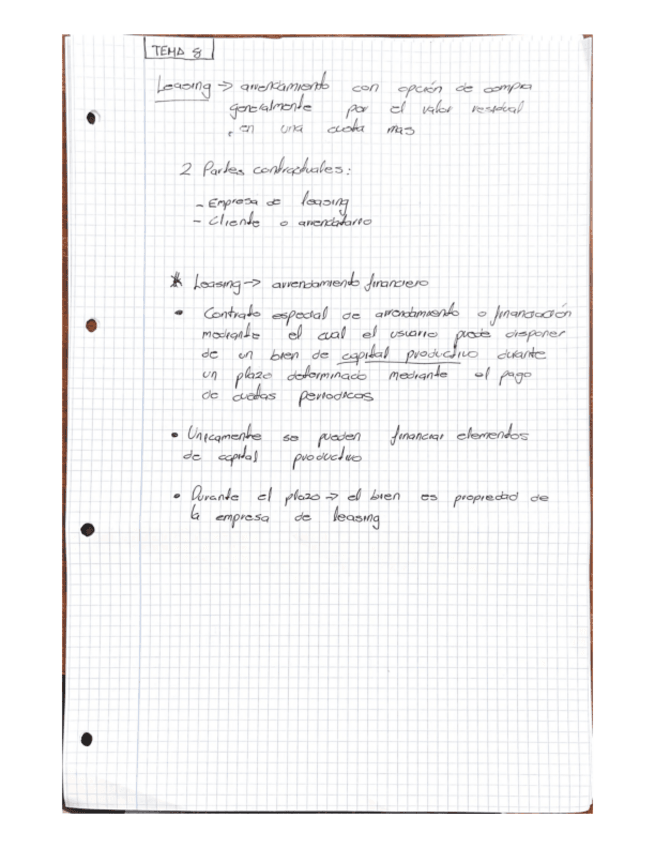 TEMA 8
Leasing → arrendamiento con opción de compra
generalmente por el valor residual
, en una cuota mas
2 Partes contractuales:
- Empresa de leasing
- Cliente o arrendatario
* Leasing → arrendamiento financiero
• Contrato especial de arrendamiento o financiación
mediante el cual el usuario puede disponer
de un bien de capital productivo durante
un plazo determinado mediante el pago
de cuotas periodicas
• Unicamente se pueden financiar elementos
de capital productivo
• Durante el plazo → el bien es propiedad de
la empresa de leasing